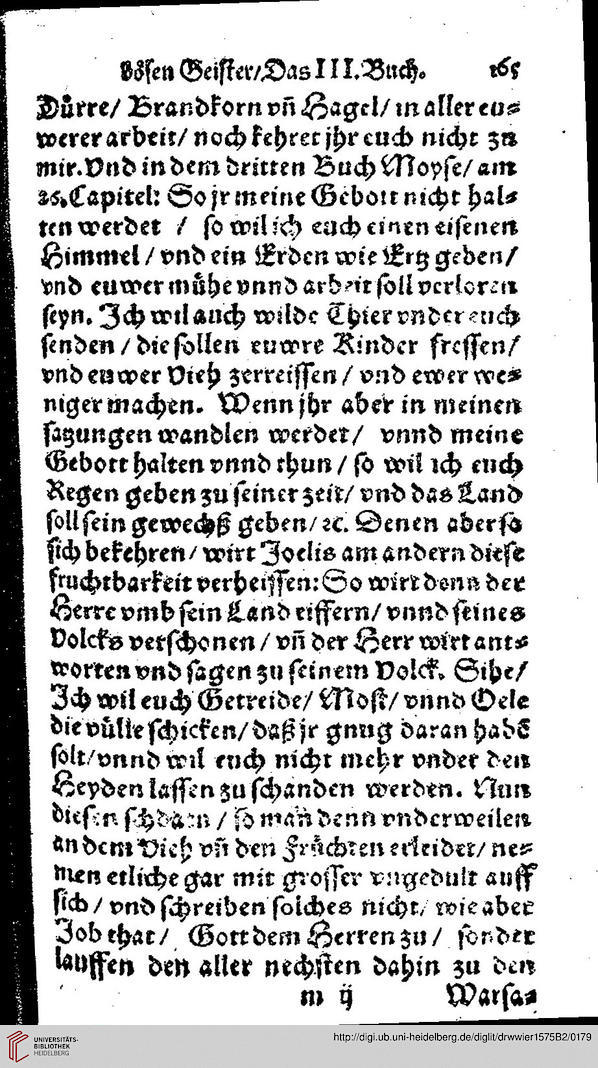 bösen Geister/Das III. Buch. 165
Dürre/ Brandkorn vñ Hagel/ in aller eu⸗
werer arbeit/ noch kehret jhr euch nicht zu
mir. Vnd in dem dritten Buch Moyse/ am
26. Capitel: So jr meine Gebott nicht hal⸗
ten werdet / so wil ich euch einen eisenen
Himmel / vnd ein Erden wie Ertz geben/
vnd euwer mühe vnnd arbeit soll verloren
seyn. Ich wil auch wilde Thier vnder euch
senden / die sollen euwre Kinder fressen/
vnd euwer Vieh zerreissen / vnd ewer we⸗
niger machen. Wenn jhr aber in meinen
satzungen wandlen werdet/ vnnd meine
Gebott halten vnnd thun / so wil ich euch
Regen geben zu seiner zeit/ vnd das Land
soll sein gewechß geben/ ꝛc. Denen aber so
sich bekehren / wirt Joelis am andern diese
fruchtbarkeit verheissen: So wirt denn der
Herre vmb sein Land eiffern/ vnnd seines
Volcks verschonen / vñ der Herr wirt ant⸗
worten vnd sagen zu seinem Volck. Sihe/
Ich wil euch Getreide/ Most/ vnnd Oele
die vülle schicken/ daß jr gnug daran habẽ
solt/ vnnd wil euch nicht mehr vnder den
Heyden lassen zu schanden werden. Nun
diesen schaden / so man denn vnderweilen
an dem Vieh vñ den Früchten erleidet/ ne⸗
men etliche gar mit grosser vngedult auff
sich / vnd schreiben solches nicht/ wie aber
Job that / Gott dem Herren zu / sonder
lauffen den aller nechsten dahin zu den
m ij Warsa⸗
UNIVERSITÄTS-
BIBLIOTHEK
HEIDELBERG
http://digi.ub.uni-heidelberg.de/diglit/drwwier1575B2/0179